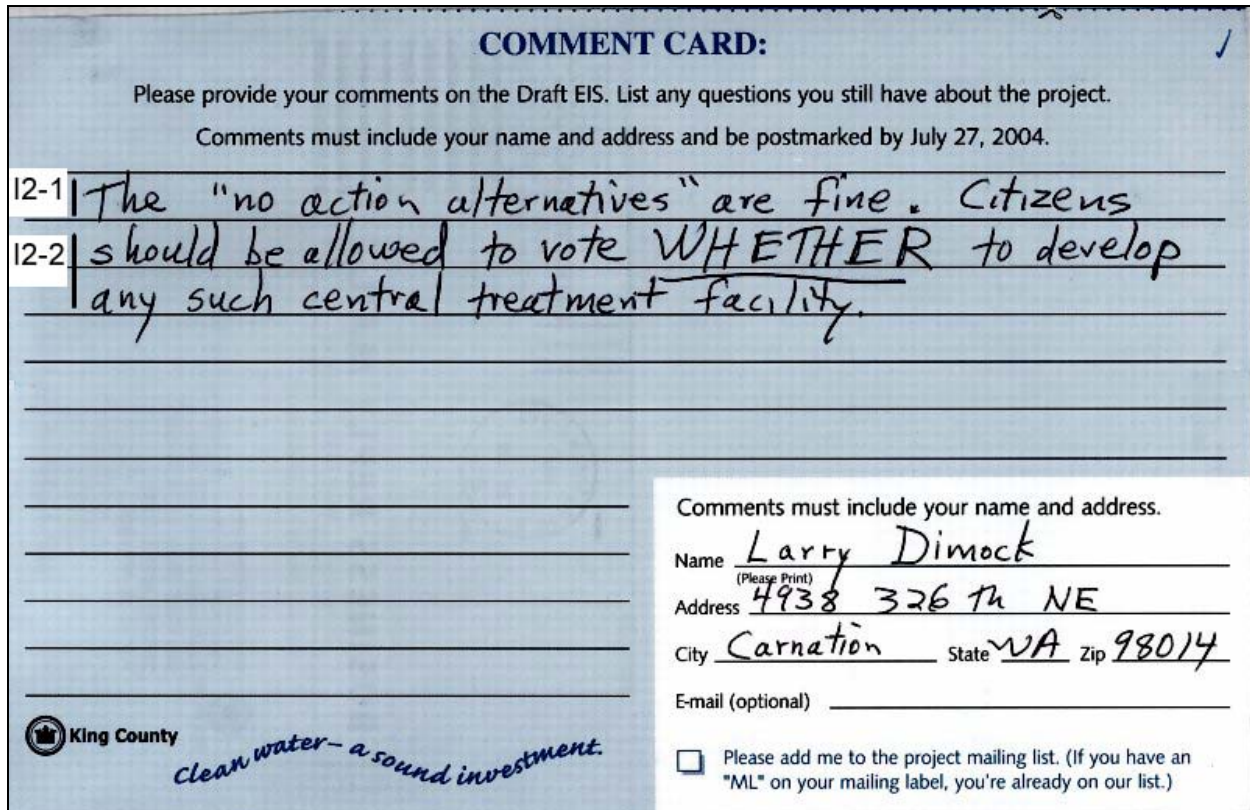 COMMENT CARD:
Please provide your comments on the Draft EIS. List any questions you still have about the project.
Comments must include your name and address and be postmarked by July 27, 2004.
I2-1 The "no action alternatives" are fine. Citizens
I2-2 should be allowed to vote WHETHER to develop
any such central treatment facility.
Comments must include your name and address.
Name Larry Dimock
(Please Print)
Address 4938 326 th NE
City Carnation State WA Zip 98014
E-mail (optional)
King County
Clean water – a sound investment.
Please add me to the project mailing list. (If you have an
"ML" on your mailing label, you're already on our list.)